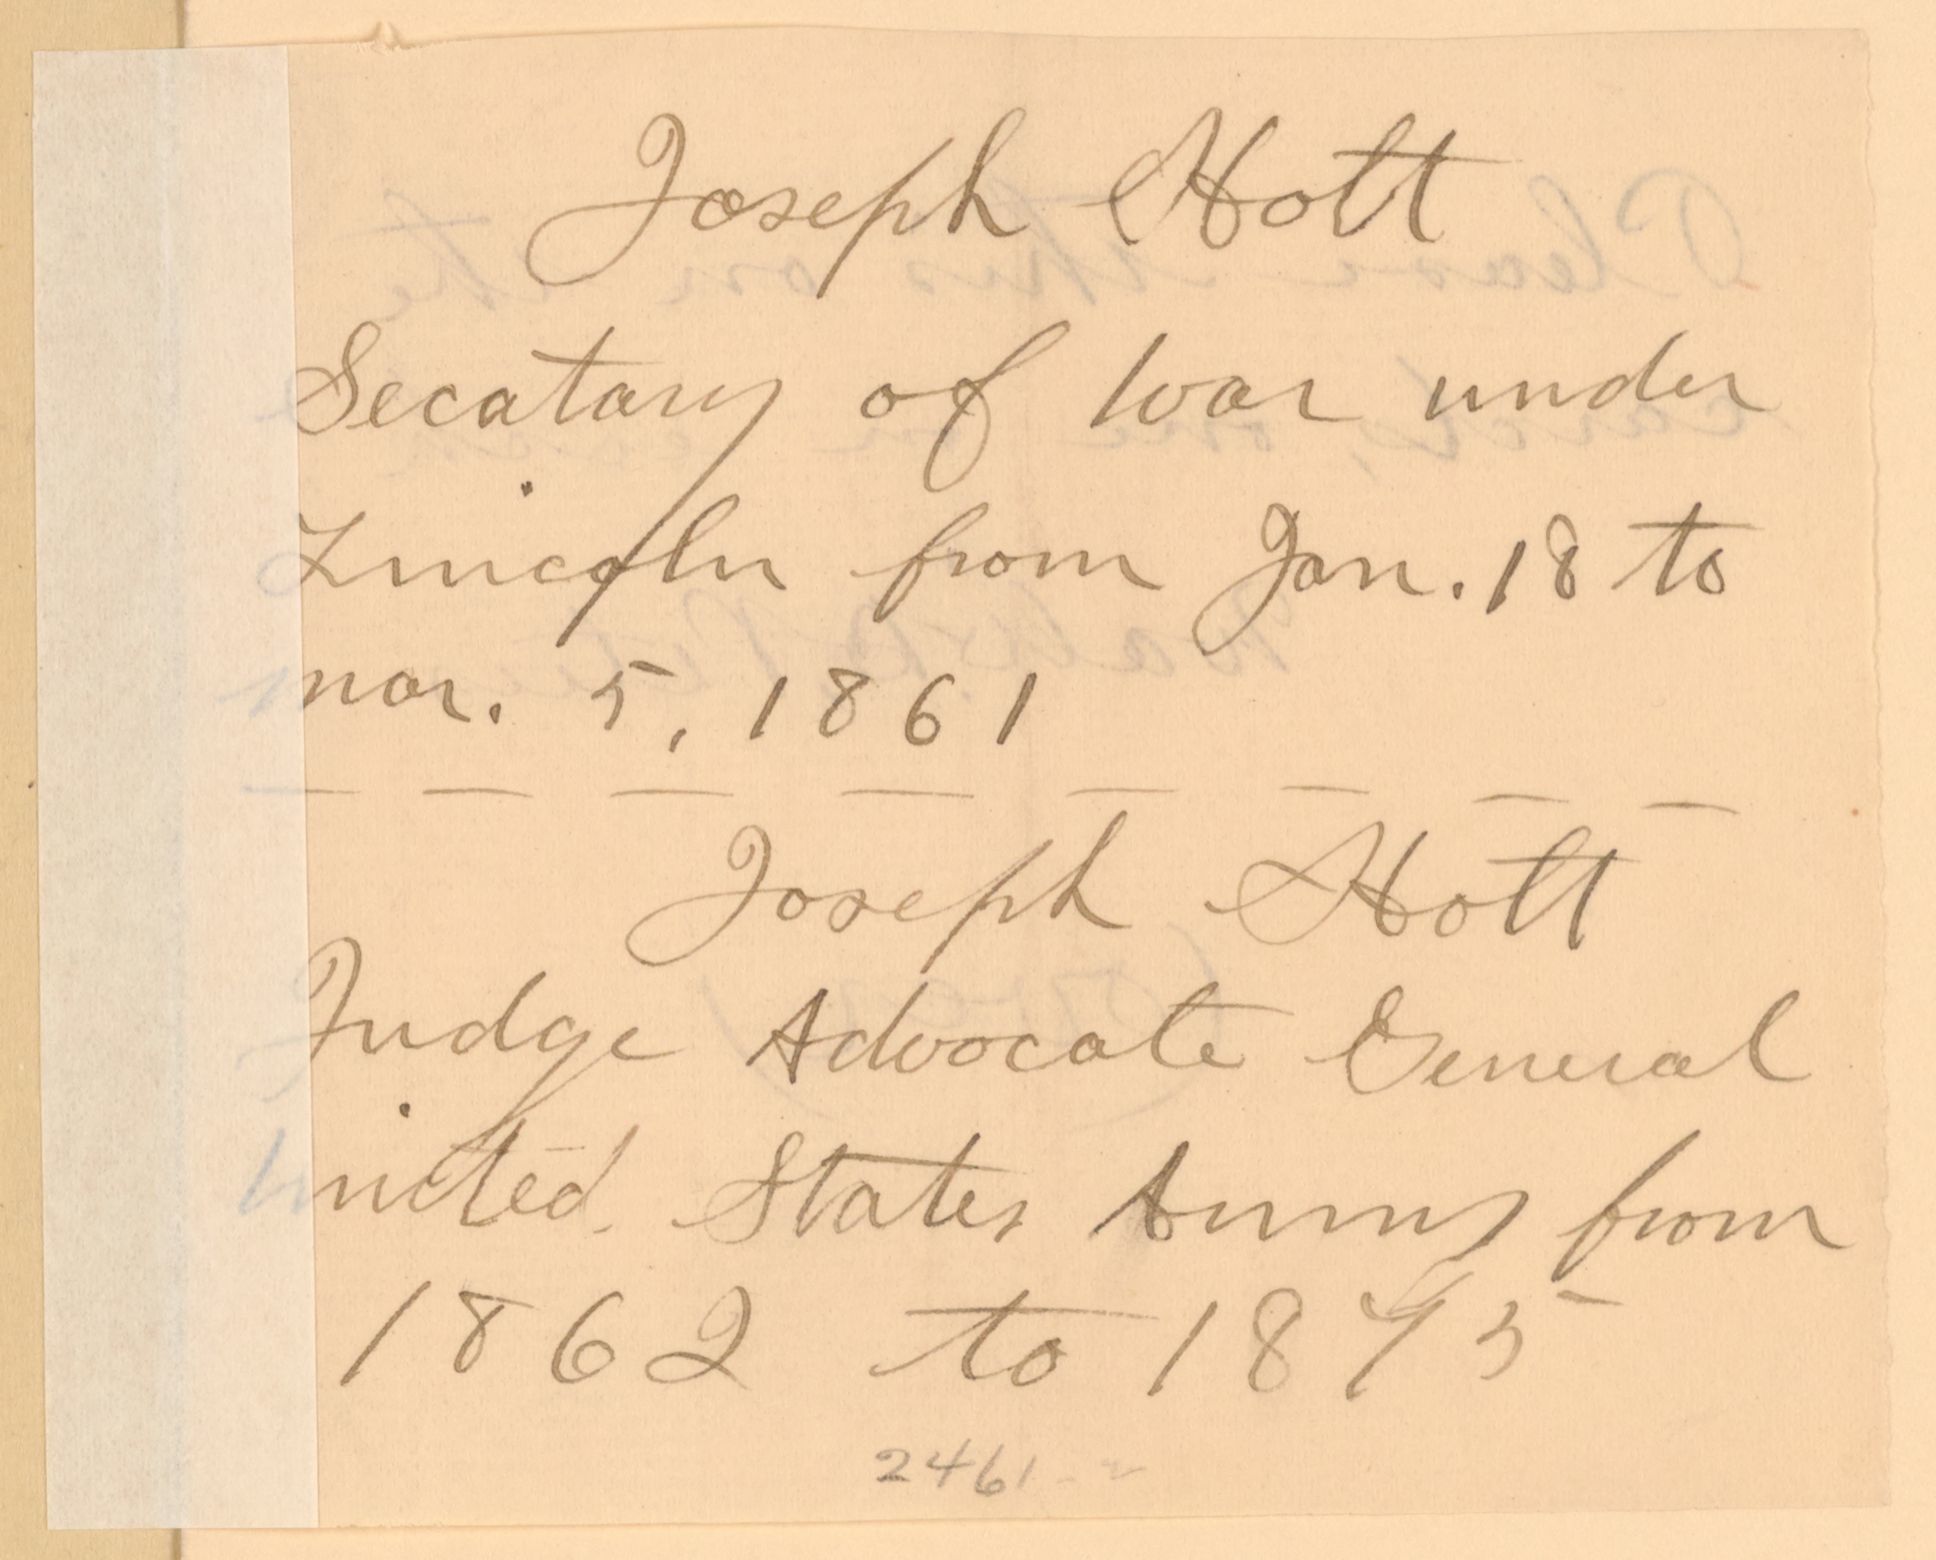 Joseph Holt
Secatary of War under
Lincoln from Jan. 18 to
mar. 5, 1861
Joseph Holt
Judge Advocate General
United States Army from
1862 to 1875
2461